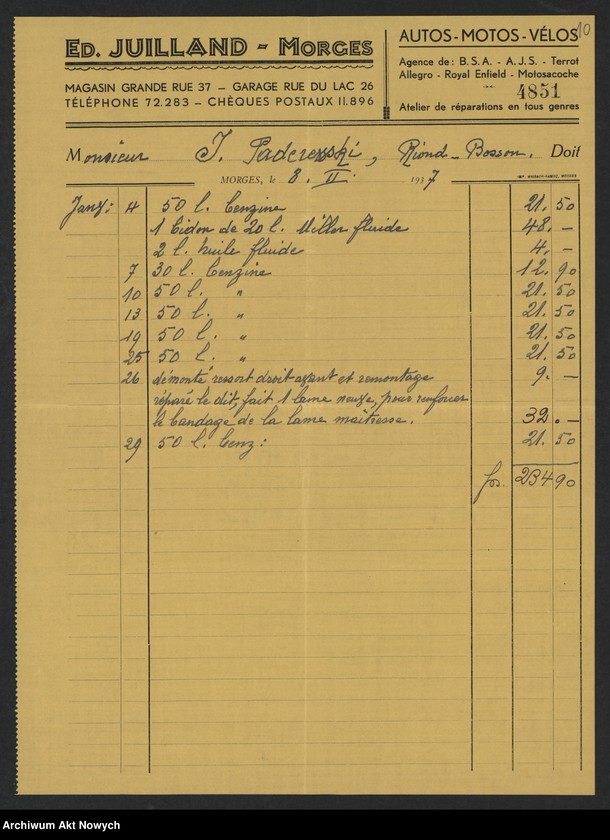 10
ED. JUILLAND - MORGES
MAGASIN GRANDE RUE 37 – GARAGE RUE DU LAC 26
TÉLÉPHONE 72.283 – CHÈQUES POSTAUX II.896
AUTOS - MOTOS - VÉLOS
Agence de: B.S.A. - A.J.S. - Terrot
Allegro - Royal Enfield - Motosacoche
4851
Atelier de réparations en tous genres
Monsieur J. Paderewski, Riond-Bosson. Doit
MORGES, le 8. II. 1937
Janv: 4 50 l. benzine 21.50
1 bidon de 20 l. Miller fluide 48.—
2 l. huile fluide 4.—
7 30 l. benzine 12.90
10 50 l. " 21.50
13 50 l. " 21.50
19 50 l. " 21.50
25 50 l. " 21.50
26 démonté ressort droit avant et remontage 9.—
réparé le dit, fait 1 lame neuve, pour renforcer
le bandage de la lame maîtresse. 32.—
29 50 l. benz: 21.50
frs. 234 90
Archiwum Akt Nowych